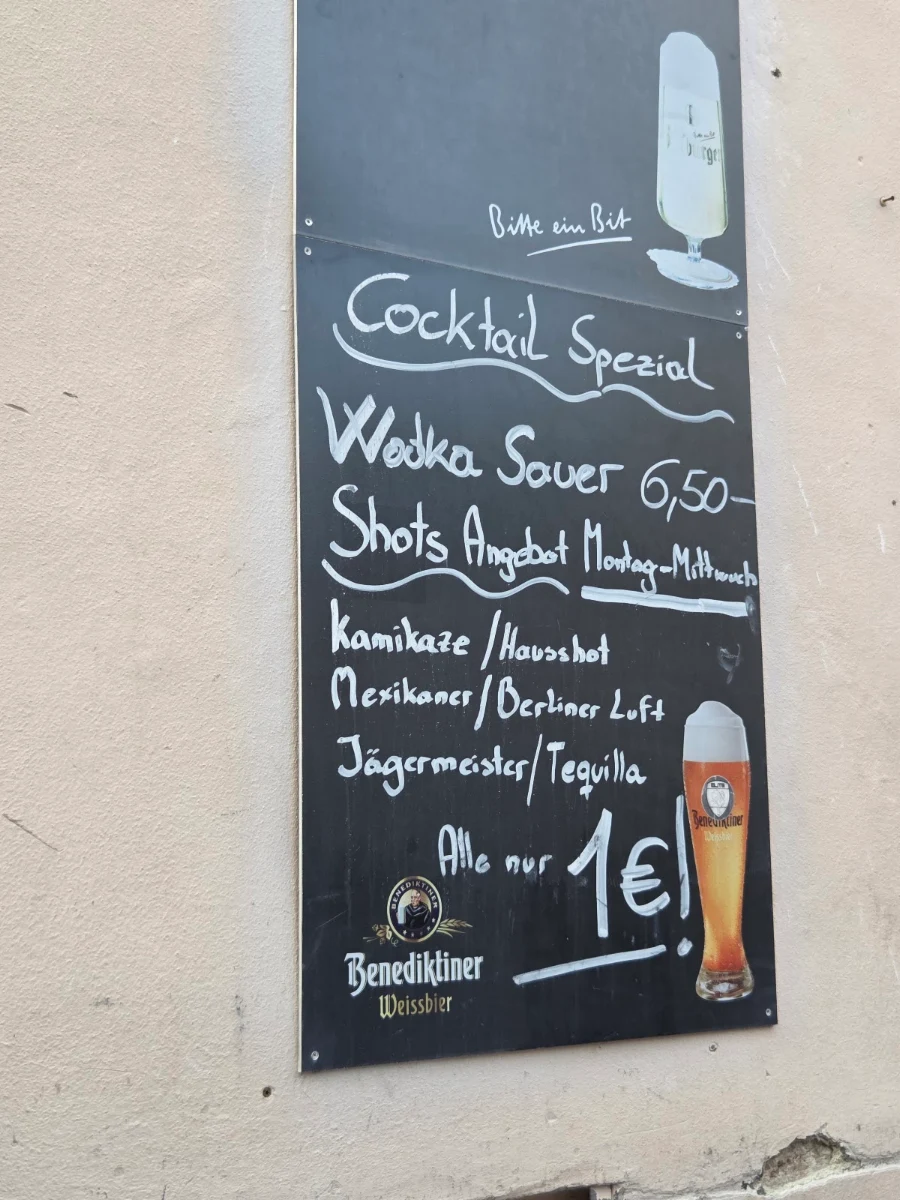 Bitte ein Bit
Cocktail Spezial
Wodka Sauer 6,50-
Shots Angebot Montag-Mittwoch
Kamikaze/Hausshot
Mexikaner/Berliner Luft
Jägermeister/Tequilla
Alle nur 1€!
BENEDIKTINER
Benediktiner
Weissbier
Benediktiner
Weissbier